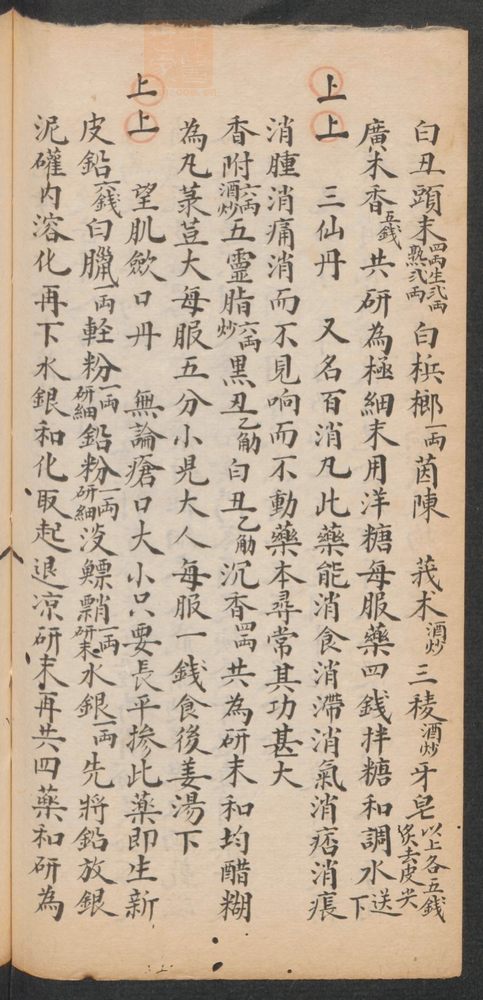 白丑頭末四兩生弍兩熟弍兩 白梹榔一兩 茵陳 莪术酒炒 三稜酒炒 牙皂以上各五錢炙去皮尖
廣木香五錢 共研為極細末用洋糖每服藥四錢拌糖和調水送下
上上 三仙丹 又名百消丸此藥能消食消滯消氣消痞消痕
消腫消痛消而不見响而不動藥本尋常其功甚大
香附六兩酒炒五靈脂六兩炒黑丑乙觔白丑乙觔沉香四兩共為研末和均醋糊
為丸菉荳大每服五分小児大人每服一錢食後姜湯下
上上 望肌歛口丹 無論瘡口大小只要長平摻此藥即生新
皮鉛六錢白臘一兩輊粉一兩研細鉛粉一兩研細沒鰾鞘一兩研末水銀一兩先將鉛放銀
泥礶内溶化再下水銀和化取起退凉研末再共四藥和研為